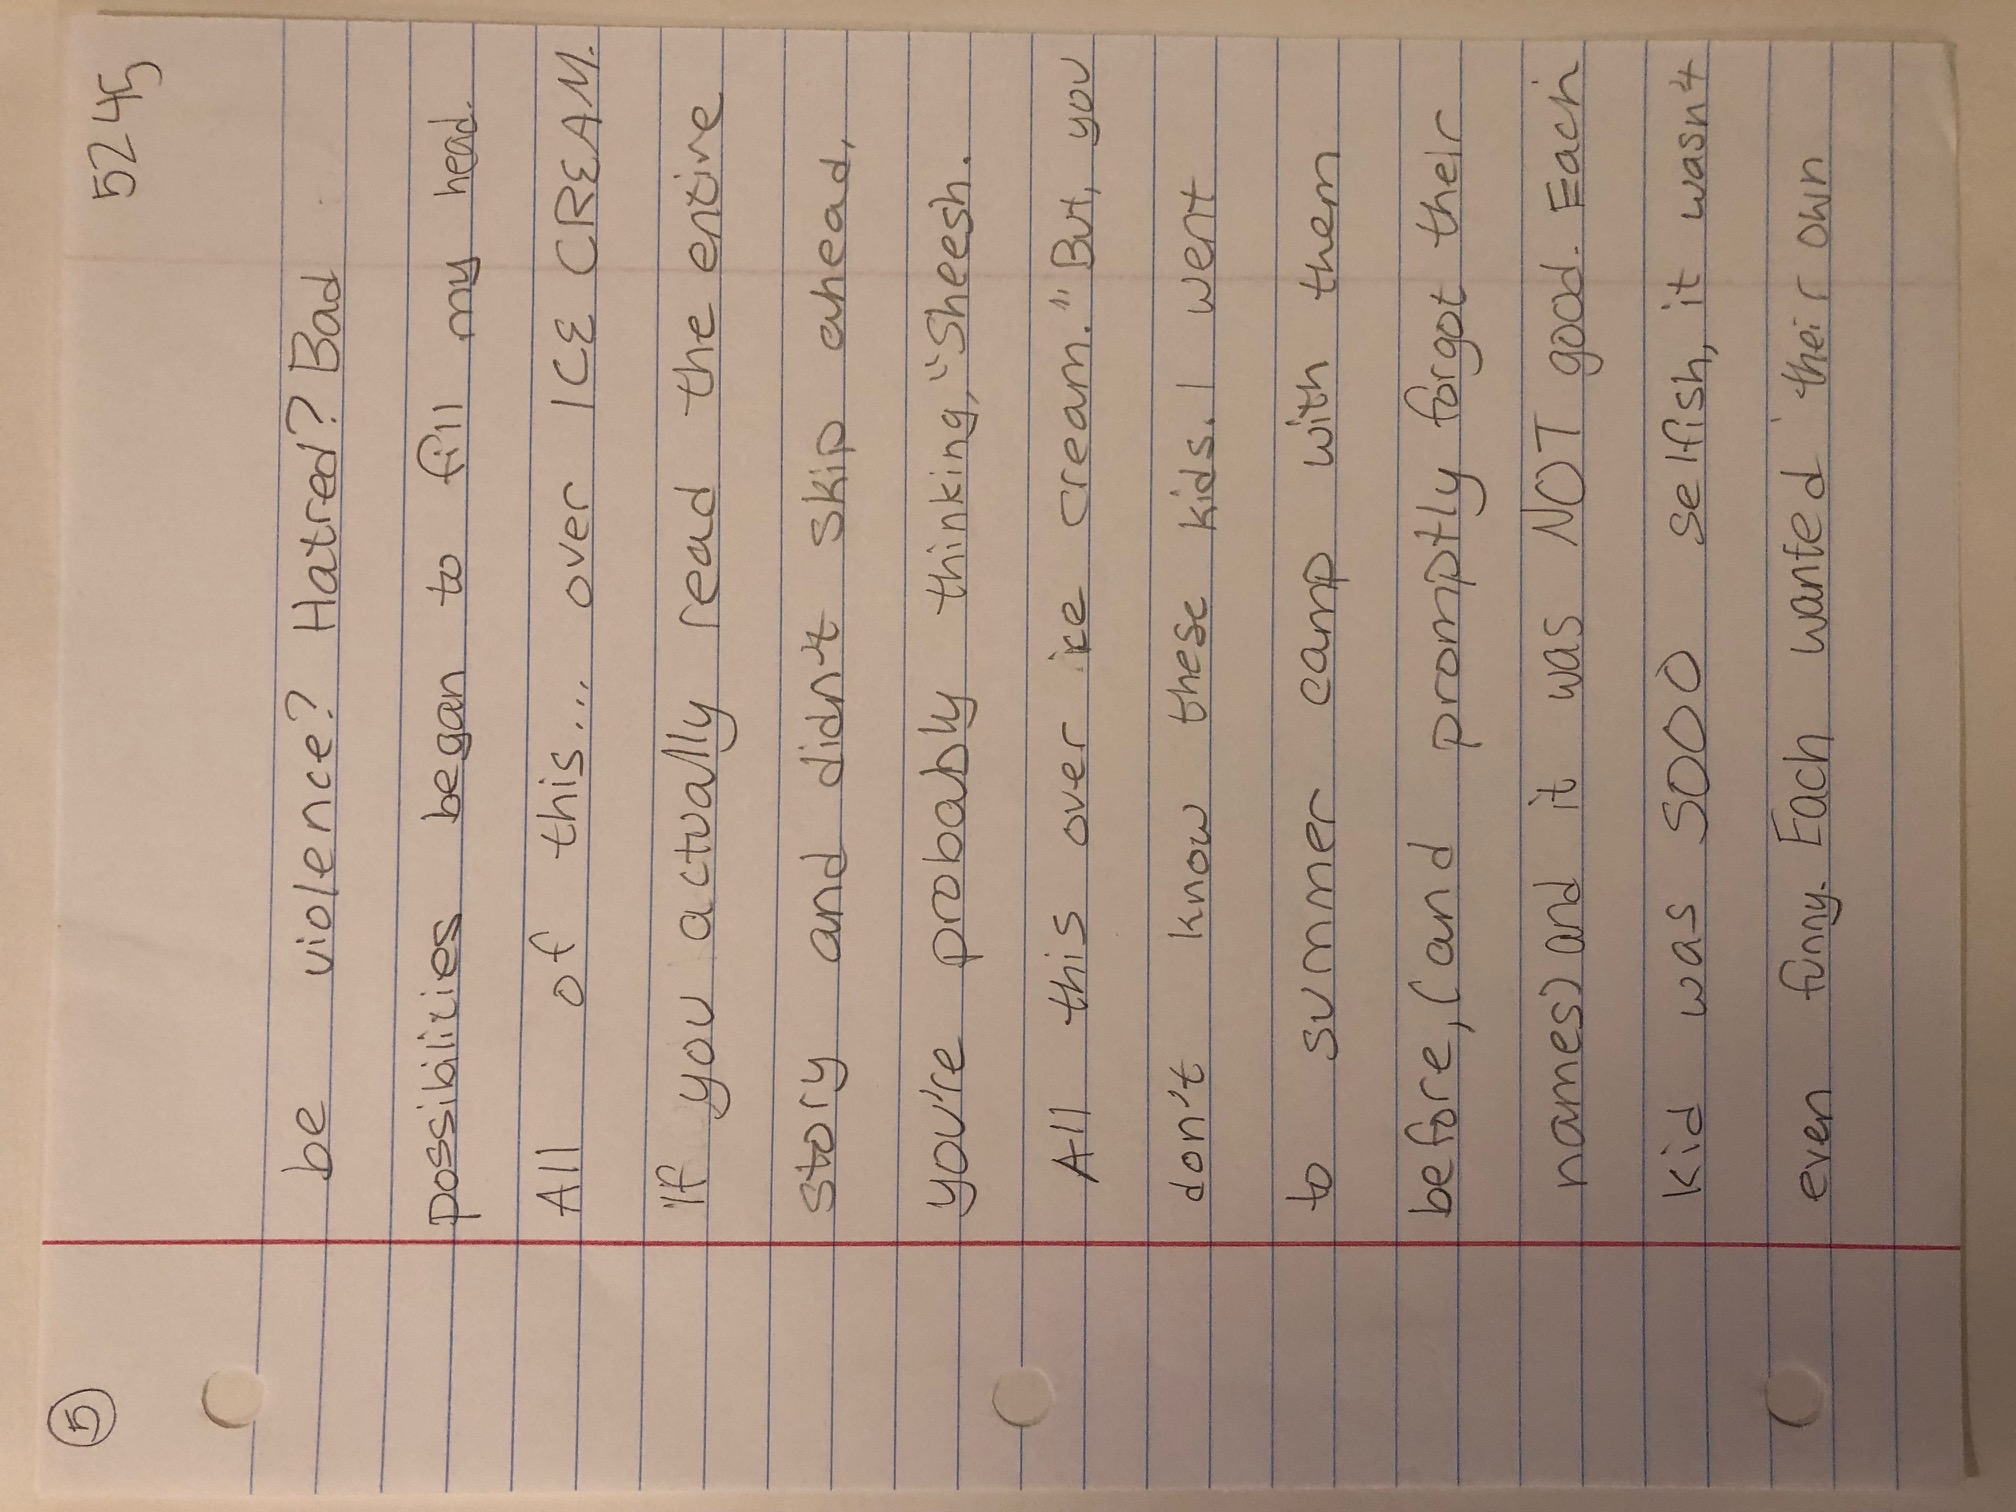 5
5245
be violence? Hatred? Bad
possibilities began to fill my head.
All of this... over ICE CREAM.
If you actually read the entire
story and didn't skip ahead,
you're probably thinking, "Sheesh.
All this over ice cream." But, you
don't know these kids. I went
to summer camp with them
before, (and promptly forgot their
names) and it was NOT good. Each
kid was SOOO selfish, it wasn't
even funny. Each wanted their own